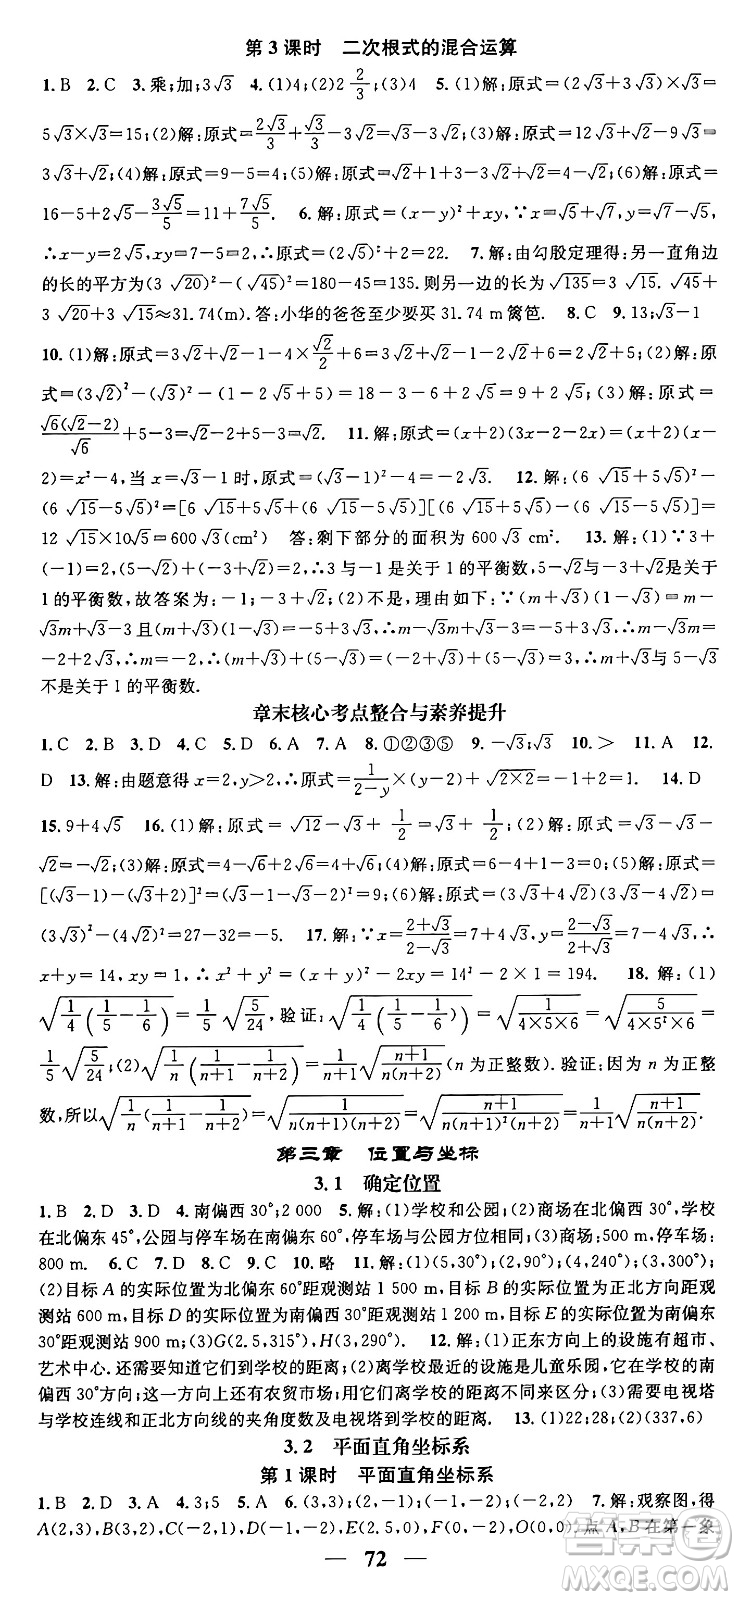 第 3 课时　二次根式的混合运算
1.B　2.C　3.乘;加;3√3　4.(1)4;(2)2 2/3;(3)4　5.(1)解:原式=(2√3+3√3)×√3=
5√3×√3=15;(2)解:原式=2√3/3+√3/3-3√2=√3-3√2;(3)解:原式=12√3÷4√3=
3√3+√2;(4)解:原式=9-5=4;(5)解:原式=2+√2-2=√2;(6)解:原式=
16-5+2√5-3√5/5=11+7√5/5.　6.解:原式=(x-y)²+xy,∵x=√7+√5,y=√7-√5,
∴x-y=2√5,xy=7-5=2,∴原式=(2√5)²+2=22.　7.解:由勾股定理得:另一直角边
的长的平方为(3 √20)²-(√45)²=180-45=135.则另一边的长为√135=3 √15. √45+
3 √20+3 √15≈31.74(m).答:小华的爸爸至少要买 31.74 m篱笆.　8.C　9.13;√3-1
10.(1)解:原式=3√2+√2-1-4√3×√2/2+6=4√2-1-2√6+6=4√2-2√6+5;(2)解:原
式=(3√2)²-(√3)²-(5-2√5+1)=18-3-6+2√5=9+2√5;(3)解:原式=
√6(√2-2)/√6+5-3=√2-2+5-3=√2.　11.解:原式=(x+2)(3x-2-2x)=(x+2)(x-
2)=x²-4,当 x=√3-1 时,原式=(√3-1)²-4=-2√3.　12.解:(6 √15+5√5)²-
(6 √15-5√5)²=[6 √15+5√5+(6 √15-5√5)][(6 √15+5√5)-(6 √15-5√5)]=
12 √15×10√5=600√3(cm²)　答:剩下部分的面积为 600√3 cm².　13.解:(1)∵3+
(-1)=2,(5-√2)+(-3+√2)=2,∴3 与-1,5-√2与-3+√2是关于 1 的平衡数,是关于
1 的平衡数,故答案为:-1;-3+√2;(2)不是.理由如下:∵(m+√3)×(1-√3)=m-
√3m+√3-3 且(m+√3)(1-√3)=-5+3√3,∴m-√3m+√3-3=-5+3√3,∴m-√3m=
-2+2√3,即m(1-√3)=-2(1-√3),∴m=-2,∴(-2+√3)+(5-√3)=3,∴-2+√3与 5-√3
不是关于 1 的平衡数.
章末核心考点整合与素养提升
1.C　2.B　3.D　4.A　5.D　6.A　7.A　8.①②③⑤　9.-√3;√3　10.>　11.A　12.
D　13.解:由题意得 x=2,y>2,∴原式=1/(2-y)×(y-2)+ √(2×2)=-1+2=1.　14.D
15.9+4√5　16.(1)解:原式= √12-√3+ 1/2=√3+ 1/2;(2)解:原式=√3-√2-√3=
-√2;(3)解:原式=4-√6+2√6=4+√6;(4)解:原式=6-4+1-3=0;(5)解:原式=
[(√3-1)-(√3+2)]²=(-1-2)²=9;(6)解:原式=(3√3+4√2)(3√3-4√2)=
(3√3)²-(4√2)²=27-32=-5.　17.解:∵x=(2+√3)/(2-√3)=7+4√3,y=(2-√3)/(2+√3)=7-4√3,∴
x+y=14,xy=1,∴x²+y²=(x+y)²-2xy=14²-2×1=194.　18.解:(1)
√(1/4(1/5-1/6))=1/5√(5/24),验证:√(1/4(1/5-1/6))=√(1/(4×5×6))=√(5/(4×5²×6))=
1/5√(5/24);(2)√(1/n(1/(n+1)-1/(n+2)))=1/(n+1)√((n+1)/(n(n+2)))(n 为正整数).验证:因为 n 为正整
数,所以√(1/n(1/(n+1)-1/(n+2)))=√(1/(n(n+1)(n+2)))=√((n+1)/(n(n+1)²(n+2)))=1/(n+1)√((n+1)/(n(n+2))).
第三章　位置与坐标
3.1　确定位置
1.B　2.D　3.D　4.南偏西 30°;2 000　5.解:(1)学校和公园;(2)商场在北偏西 30°,学校
在北偏东 45°,公园与停车场在南偏东 60°,停车场与公园方位相同;(3)商场:500 m,停车场:
800 m.　6.C　7.C　8.D　9.C　10.略　11.解:(1)(5,90°);(2,90°);(4,240°);(3,300°);
(2)目标 A 的实际位置为北偏东 60°距观测站 1 500 m,目标 B 的实际位置为正北方向距观
测站 600 m,目标 D 的实际位置为南偏西 30°距观测站 1 200 m,目标 E 的实际位置为南偏东
30°距观测站 900 m;(3)G(2.5,315°),H(3,290°).　12.解:(1)正东方向上的设施有超市、
艺术中心.还需要知道它们到学校的距离;(2)距离学校最近的设施是儿童乐园,在学校的南
偏西 30°方向;这一方向还有农贸市场,可以根据它们到学校的距离来区分;(3)需要电视塔
与学校连线和正北方向线的夹角度数及电视塔到学校的距离.　13.(1)22;28;(2)(337,6)
3.2　平面直角坐标系
第 1 课时　平面直角坐标系
1.B　2.D　3.A　4.3;5　5.A　6.(3,3);(2,-1);(-1,-2);(-2,2)　7.解:观察图,得
A(2,3),B(3,2),C(-2,1),D(-1,-2),E(2.5,0),F(0,-2),O(0,0);点 A,B在第一象
72
答案圈
MXQE.COM